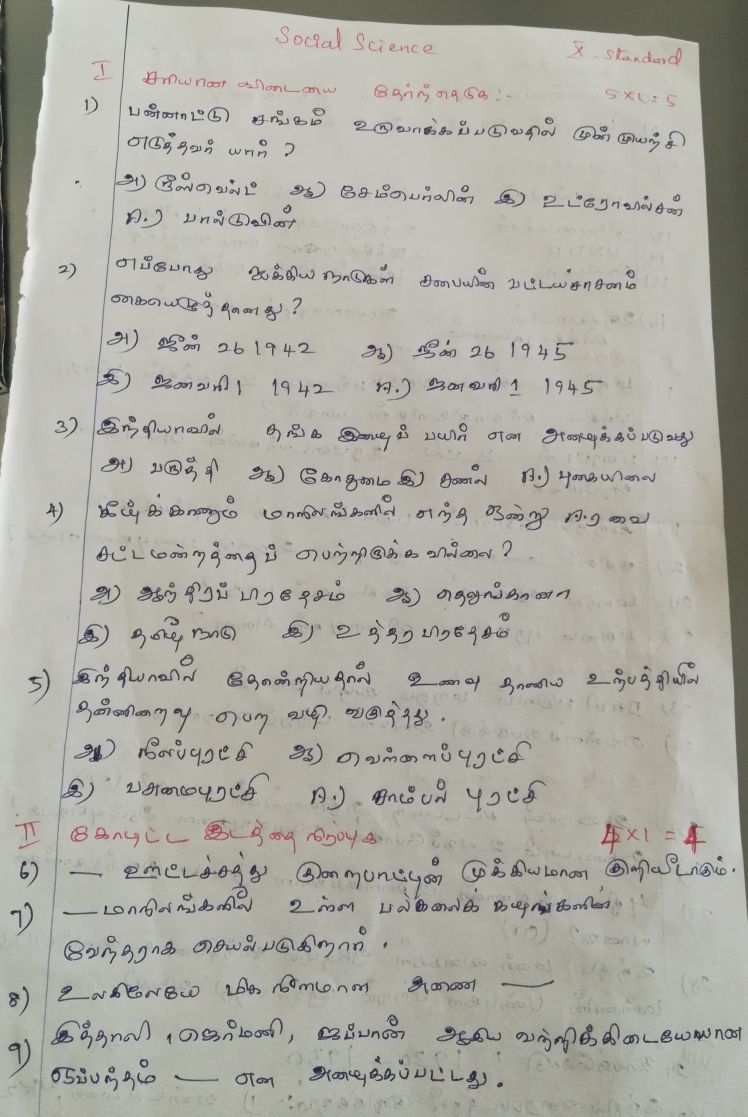 Social Science
X - standard
I சரியான விடையை தேர்ந்தெடு:- 5x1=5
1) பன்னாட்டு சங்கம் உருவாக்கப்படுவதில் முன் முயற்சி
எடுத்தவர் யார் ?
அ) ரூஸ்வெல்ட் ஆ) சேம்பெர்லின் இ) உட்ரோவில்சன்
ஈ.) பால்டுவின்
2) எப்போது ஐக்கிய நாடுகள் சபையின் பட்டயச்சாசனம்
கையெழுத்தானது ?
அ) ஜீன் 26 1942 ஆ) ஜீன் 26 1945
இ) ஜனவரி 1 1942 ஈ.) ஜனவரி 1 1945
3) இந்தியாவில் தங்க இழைப் பயிர் என அழைக்கப்படுவது
அ) பருத்தி ஆ) கோதுமை இ) சணல் ஈ.) புகையிலை
4) கீழ்க்காணும் மாநிலங்களில் எந்த ஒன்று ஈ.ரவை
சட்டமன்றத்தைப் பெற்றிருக்கவில்லை ?
அ) ஆந்திரப் பிரதேசம் ஆ) தெலுங்கானா
இ) தமிழ் நாடு இ) உத்தர பிரதேசம்
5) இந்தியாவில் தோன்றியதால் உணவு தானிய உற்பத்தியில்
தன்னிறைவு பெற வழி வகுத்தது.
அ) நீலப்புரட்சி ஆ) வெள்ளைப்புரட்சி
இ) பசுமைபுரட்சி ஈ.) சாம்பல் புரட்சி
II கோடிட்ட இடத்தை நிரப்புக 4x1=4
6) — ஊட்டச்சத்து குறைபாட்டின் முக்கியமான குறியீடாகும்.
7) — மாநிலங்களில் உள்ள பல்கலைக் கழகங்களின்
வேந்தராக செயல்படுகிறார்.
8) உலகிலேயே மிக நீளமான அணை —
9) இத்தாலி, ஜெர்மனி, ஜப்பான் ஆகியவற்றிக்கிடையேயான
ஒப்பந்தம் — என அழைக்கப்பட்டது.